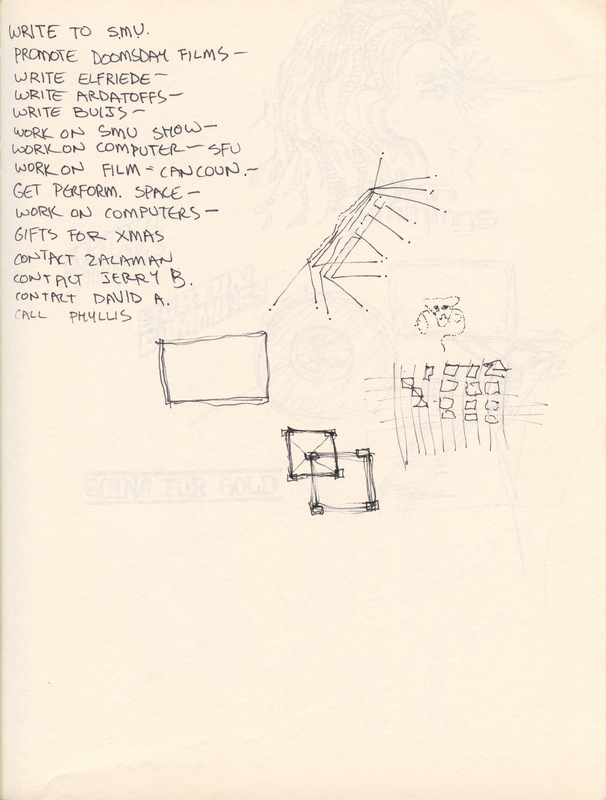 WRITE TO S.M.U.
PROMOTE DOOMSDAY FILMS —
WRITE ELFRIEDE —
WRITE ARDATOFFS —
WRITE BUIJS —
WORK ON SMU SHOW —
WORK ON COMPUTER — SFU
WORK ON FILM = CANCOUN. —
GET PERFORM. SPACE —
WORK ON COMPUTERS —
GIFTS FOR XMAS
CONTACT ZALAMAN
CONTACT JERRY B.
CONTACT DAVID A.
CALL PHYLLIS
GOING FOR GOLD